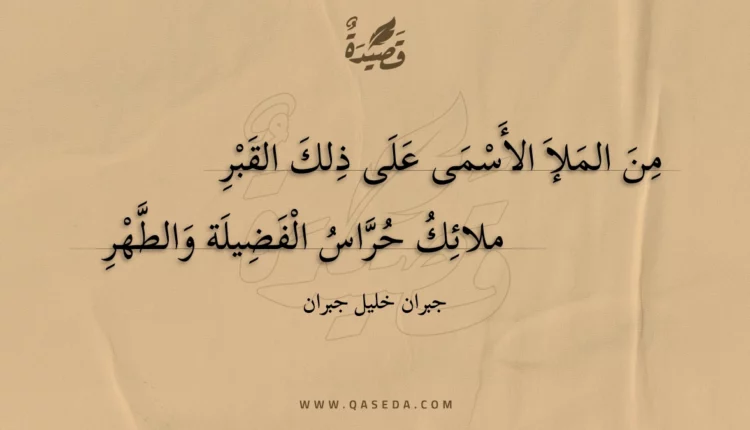 قَصِيْدَةٌ
مِنَ المَلإَ الأَسْمَى عَلَى ذِلكَ القَبْرِ
ملائِكُ حُرَّاسُ الْفَضِيلَة وَالطَّهْرِ
جبران خليل جبران
WWW.QASEDA.COM